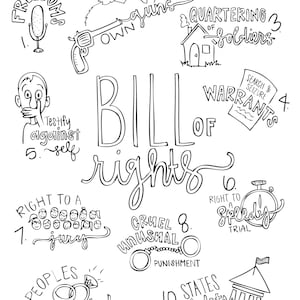 FREEDOMS
1.
OWN
guns
QUARTERING
3.
of
soldiers
SEARCH &
SEIZURE
WARRANTS
4.
Testify
against
5. self
BILL OF
rights
6.
RIGHT TO
Speedy
TRIAL
RIGHT TO A
7. jury
8.
CRUEL
UNUSUAL
PUNISHMENT
PEOPLES
10 STATES